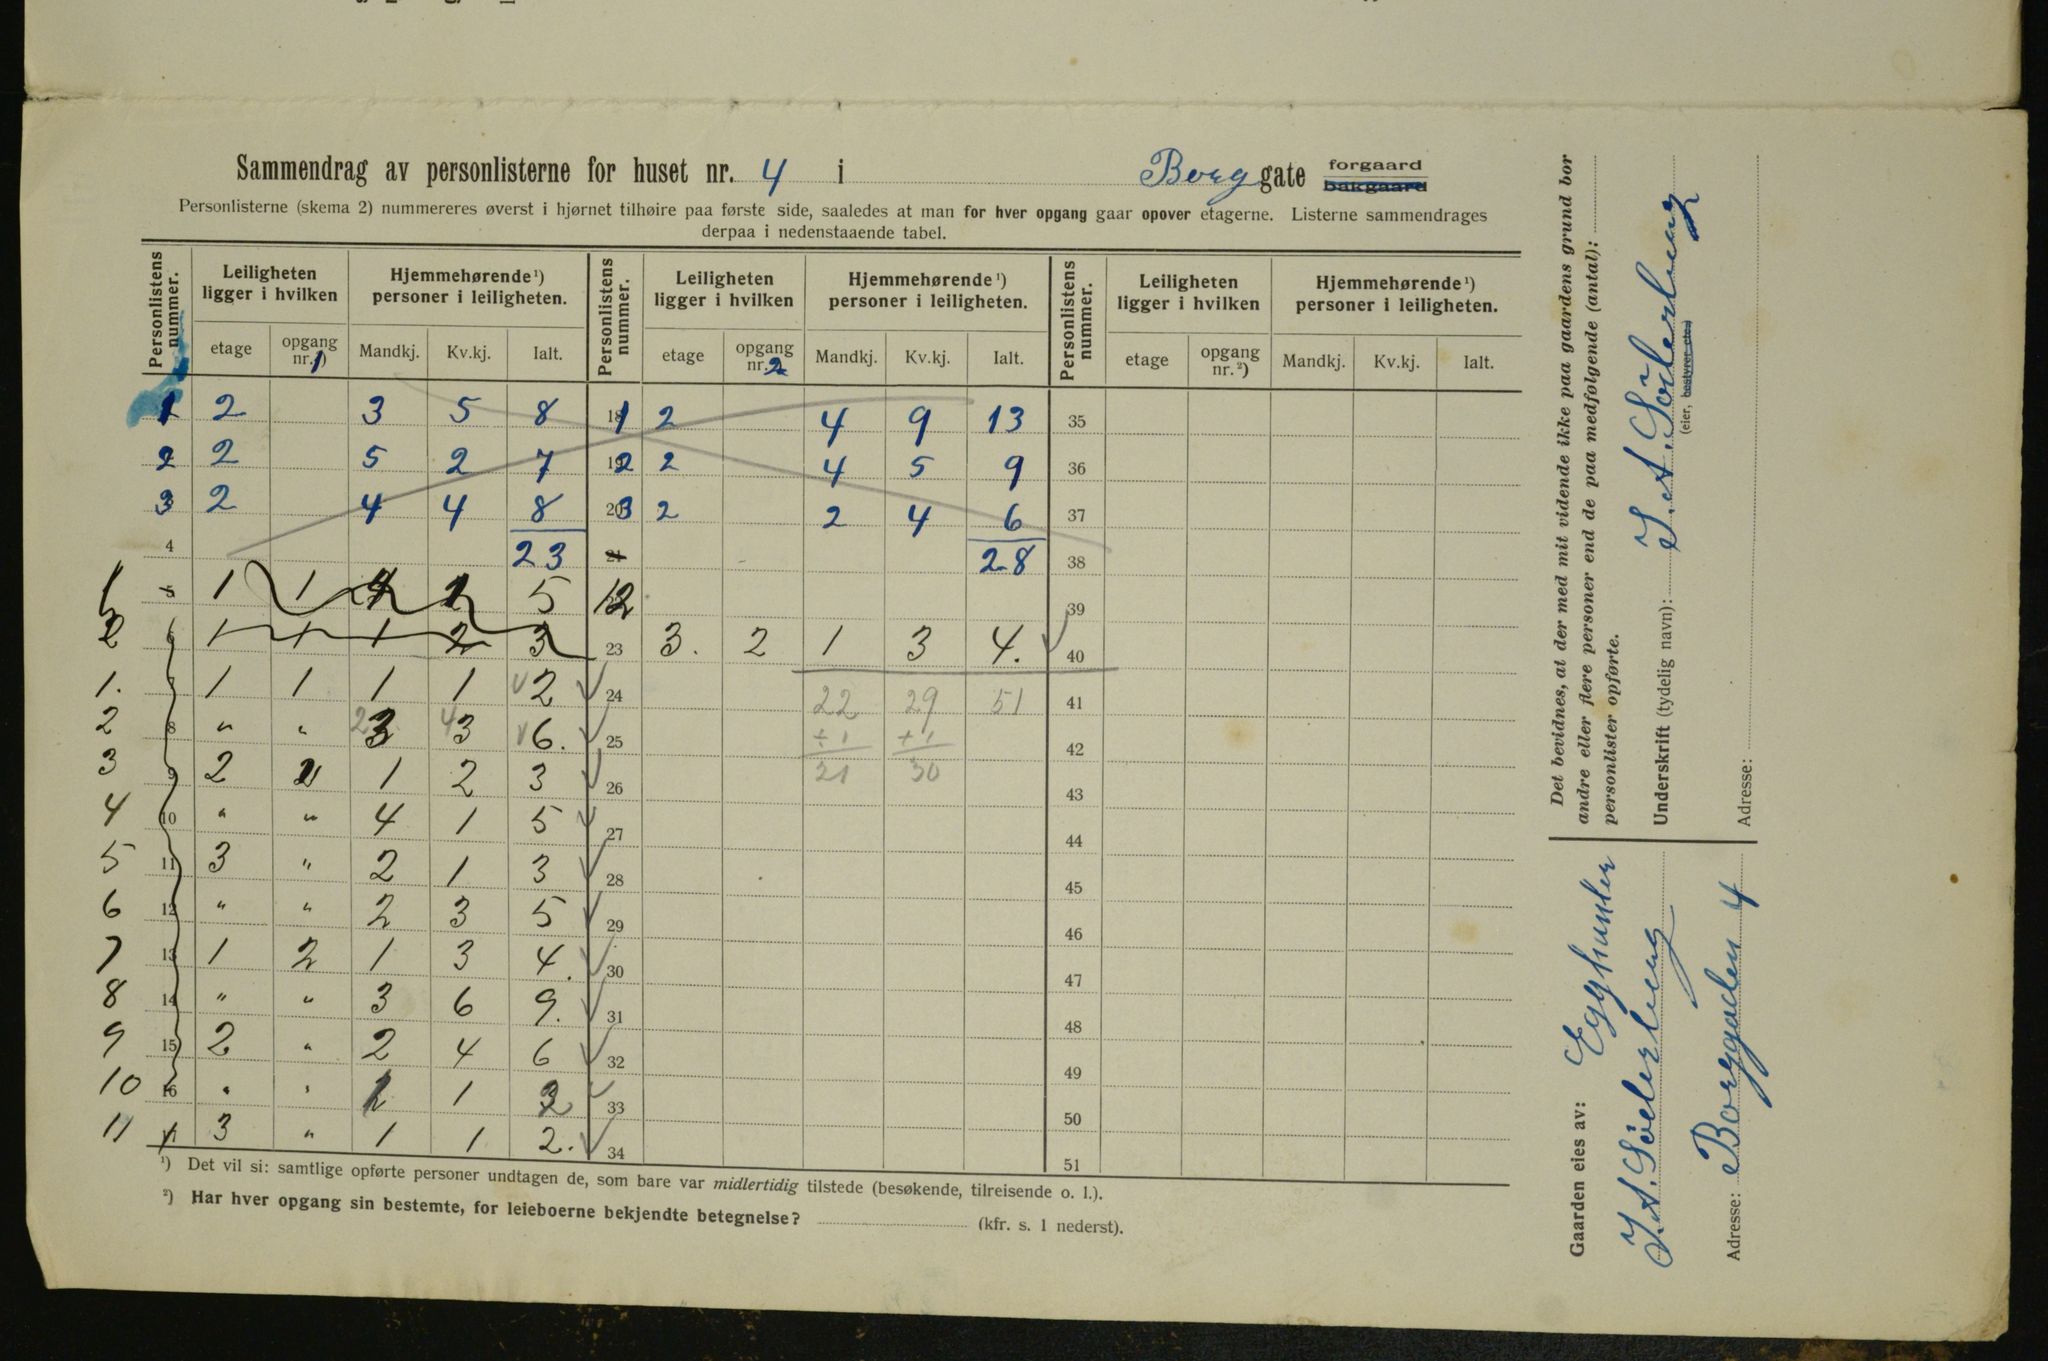 Sammendrag av personlisterne for huset nr. 4 i Borg gate forgaard bakgaard
Personlisterne (skema 2) nummereres øverst i hjørnet tilhøire paa første side, saaledes at man for hver opgang gaar opover etagerne. Listerne sammendrages
derpaa i nedenstaaende tabel.
Personlistens nummer. Leiligheten ligger i hvilken Hjemmehørende ¹) personer i leiligheten. Personlistens nummer. Leiligheten ligger i hvilken Hjemmehørende ¹) personer i leiligheten. Personlistens nummer. Leiligheten ligger i hvilken Hjemmehørende ¹) personer i leiligheten.
etage opgang nr. 1) Mandkj. Kv.kj. Ialt. etage opgang nr. 2 Mandkj. Kv.kj. Ialt. etage opgang nr. ²) Mandkj. Kv.kj. Ialt.
1 2 3 5 8 18 1 2 4 9 13 35
2 2 5 2 7 19 2 2 4 5 9 36
3 2 4 4 8 20 3 2 2 4 6 37
4 23 21 28 38
1 5 1 1 4 1 5 12 39
2 6 1 1 1 2 3 23 3. 2 1 3 4. 40
1. 7 1 1 1 1 2 24 22 29 51 41
2 8 " " 2 3 4 3 6. 25 + 1 + 1 42
3 9 2 1 2 3 26 21 30 43
4 10 " " 4 1 5 27 44
5 11 3 " 2 1 3 28 45
6 12 " " 2 3 5 29 46
7 13 1 2 1 3 4. 30 47
8 14 " " 3 6 9. 31 48
9 15 2 " 2 4 6 32 49
10 16 " " 1 33 50
11 17 3 " 1 1 2. 34 51
¹) Det vil si: samtlige opførte personer undtagen de, som bare var midlertidig tilstede (besøkende, tilreisende o. l.).
²) Har hver opgang sin bestemte, for leieboerne bekjendte betegnelse? (kfr. s. 1 nederst).
Det bevidnes, at der med mit vidende ikke paa gaardens grund bor
andre eller flere personer end de paa medfølgende (antal):
personlister opførte.
Underskrift (tydelig navn): J. A. Söderberg
(eier, bestyrer etc.)
Adresse:
Gaarden eies av:
J. A. Söderberg
Adresse: Borggaden 4